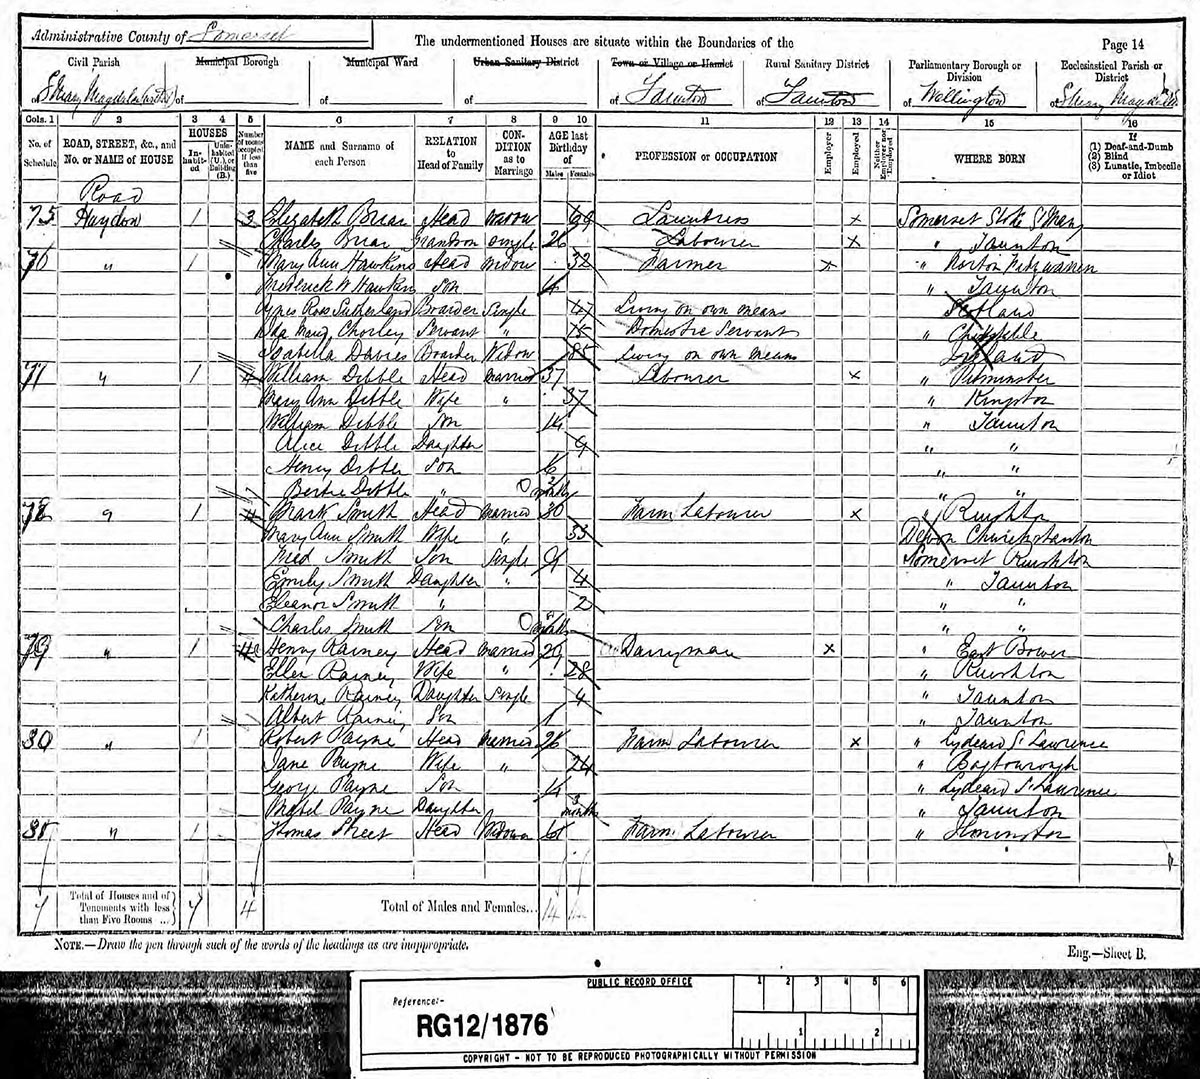 Administrative County of Somerset
The undermentioned Houses are situate within the Boundaries of the
Page 14
Civil Parish
of St Mary Magdalen
Municipal Borough
of
Municipal Ward
of
Urban Sanitary District
of
Town or Village or Hamlet
of Taunton
Rural Sanitary District
of Taunton
Parliamentary Borough or Division
of Wellington
Ecclesiastical Parish or District
of St Mary
Cols. 1 2 3 4 5 6 7 8 9 10 11 12 13 14 15 16
No. of Schedule
ROAD, STREET, &c., and No. or NAME of HOUSE
HOUSES
In-habit-ed
Unin-habited (U.), or Building (B.)
Number of rooms occupied if less than five
NAME and Surname of each Person
RELATION to Head of Family
CON-DITION as to Marriage
AGE last Birthday of
Males Females
PROFESSION or OCCUPATION
Employer
Employed
Neither Employer nor Employed
WHERE BORN
If
(1) Deaf-and-Dumb
(2) Blind
(3) Lunatic, Imbecile or Idiot
Road
75 Haydon 1 3 Elizabeth Briar Head Widow 69 Laundress x Somerset Stoke St Mary
Charles Briar Grandson Single 26 Labourer x " Taunton
76 " 1 Mary Ann Hawkins Head Widow 32 Farmer x " Norton Fitzwarren
Frederick W Hawkins Son 4 " Taunton
Agnes Ross Sutherland Boarder Single 47 Living on own means Scotland
Ada Maud Chorley Servant " 15 Domestic Servant "
Isabella Davies Boarder Widow 85 Living on own means
77 " 1 4 William Dibble Head Married 37 Labourer x " Pitminster
Mary Ann Dibble Wife " 37 " Kingston
William Dibble Son 14 " Taunton
Alice Dibble Daughter 9 " "
Henry Dibble Son 6 " "
Bertie Dibble " months " "
78 " 1 4 Mark Smith Head Married 30 Farm Labourer x " Ruishton
Mary Ann Smith Wife " 33 Devon Churchstanton
Fred Smith Son Single 9 Somerset Ruishton
Emily Smith Daughter " 4 " Taunton
Eleanor Smith " 2 " "
Charles Smith Son months " "
79 " 1 4 Henry Rainey Head Married 29 Dairyman x " East Bower
Ellen Rainey Wife " 28 " Ruishton
Katherine Rainey Daughter Single 4 " Taunton
Albert Rainey Son 1 " Taunton
80 " 1 Robert Payne Head Married 26 Farm Labourer x " Lydeard St Lawrence
Jane Payne Wife " 24 " Bagborough
George Payne Son " Lydeard St Lawrence
Mabel Payne Daughter 3 months " Taunton
81 " 1 Thomas Street Head Widower Farm Labourer "
7 Total of Houses and of Tenements with less than Five Rooms ... 7 4 Total of Males and Females... 14 14
NOTE.—Draw the pen through such of the words of the headings as are inappropriate.
Eng.—Sheet B.
PUBLIC RECORD OFFICE
1 2 3 4 5 6
Reference:-
RG12/1876
1 2
COPYRIGHT - NOT TO BE REPRODUCED PHOTOGRAPHICALLY WITHOUT PERMISSION